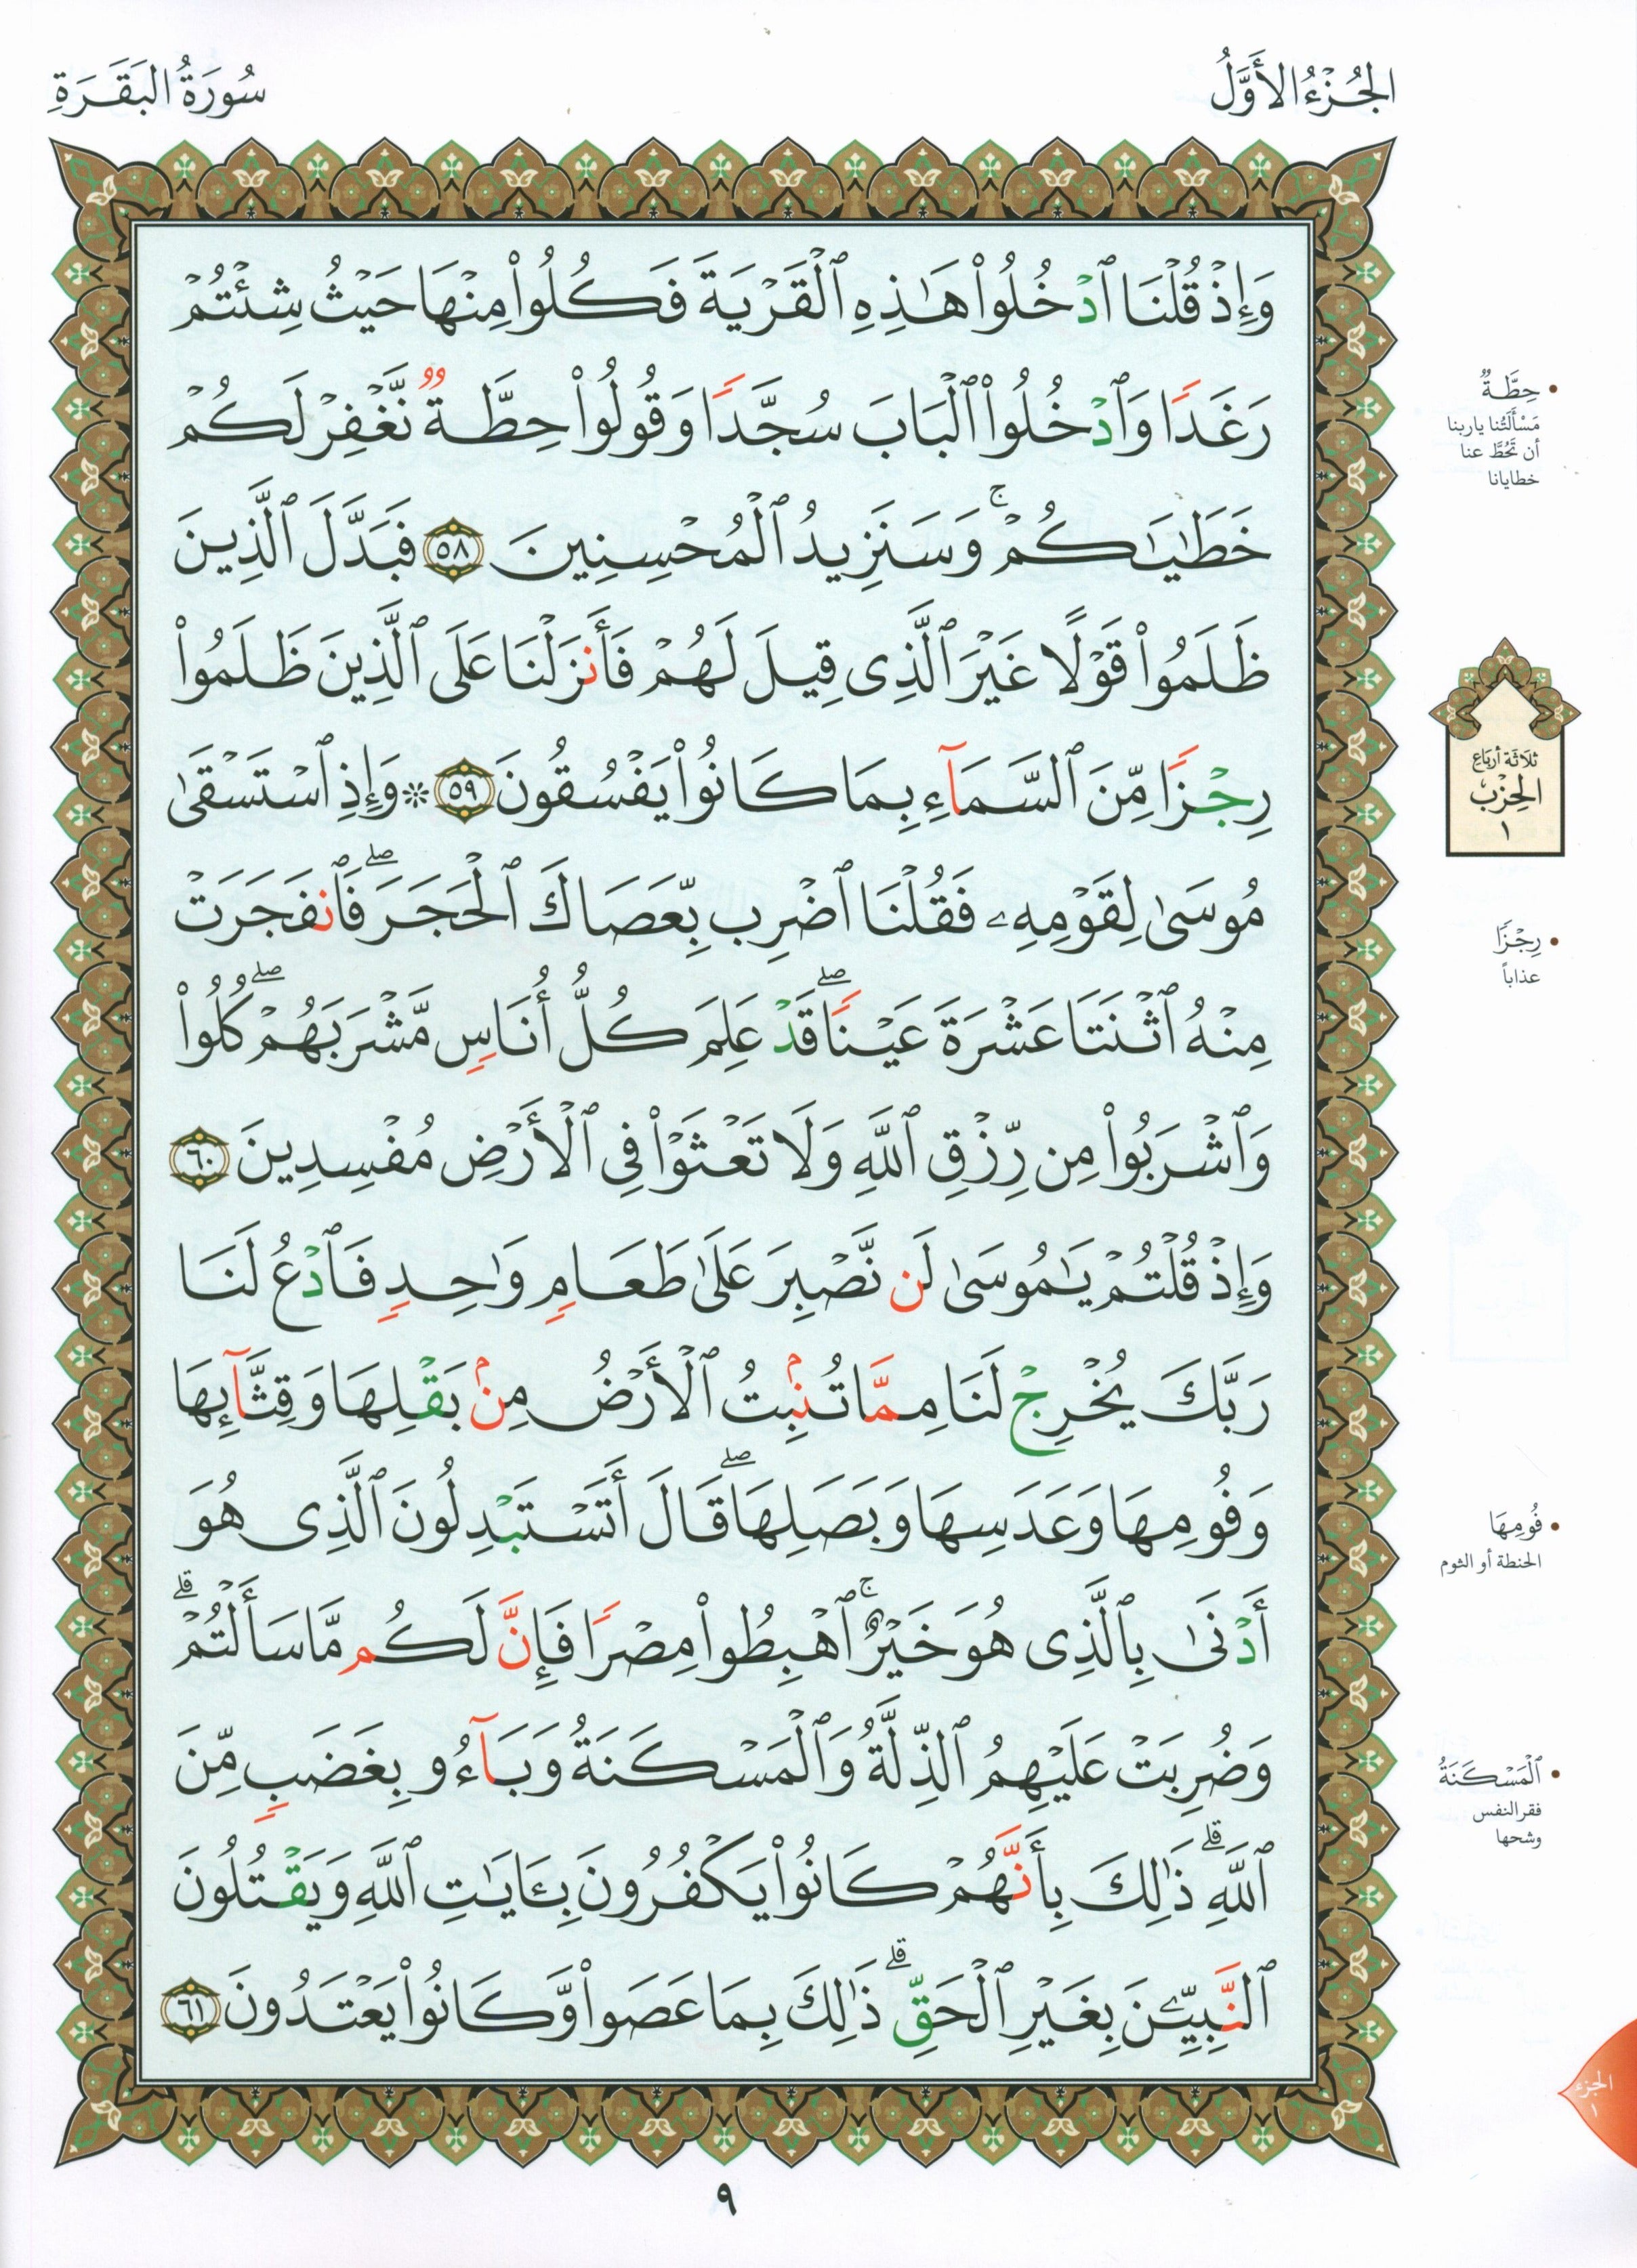 الجُزْءُ الأَوَّلُ
سُورَةُ البَقَرَةِ
وَإِذْ قُلْنَا ٱدْخُلُوا۟ هَـٰذِهِ ٱلْقَرْيَةَ فَكُلُوا۟ مِنْهَا حَيْثُ شِئْتُمْ
رَغَدًا وَٱدْخُلُوا۟ ٱلْبَابَ سُجَّدًا وَقُولُوا۟ حِطَّةٌ نَّغْفِرْ لَكُمْ
خَطَـٰيَـٰكُمْ ۚ وَسَنَزِيدُ ٱلْمُحْسِنِينَ ٥٨ فَبَدَّلَ ٱلَّذِينَ
ظَلَمُوا۟ قَوْلًا غَيْرَ ٱلَّذِى قِيلَ لَهُمْ فَأَنزَلْنَا عَلَى ٱلَّذِينَ ظَلَمُوا۟
رِجْزًا مِّنَ ٱلسَّمَآءِ بِمَا كَانُوا۟ يَفْسُقُونَ ٥٩ ۞ وَإِذِ ٱسْتَسْقَىٰ
مُوسَىٰ لِقَوْمِهِۦ فَقُلْنَا ٱضْرِب بِّعَصَاكَ ٱلْحَجَرَ ۖ فَٱنفَجَرَتْ
مِنْهُ ٱثْنَتَا عَشْرَةَ عَيْنًا ۖ قَدْ عَلِمَ كُلُّ أُنَاسٍ مَّشْرَبَهُمْ ۖ كُلُوا۟
وَٱشْرَبُوا۟ مِن رِّزْقِ ٱللَّهِ وَلَا تَعْثَوْا۟ فِى ٱلْأَرْضِ مُفْسِدِينَ ٦٠
وَإِذْ قُلْتُمْ يَـٰمُوسَىٰ لَن نَّصْبِرَ عَلَىٰ طَعَامٍ وَٰحِدٍ فَٱدْعُ لَنَا
رَبَّكَ يُخْرِجْ لَنَا مِمَّا تُنۢبِتُ ٱلْأَرْضُ مِنۢ بَقْلِهَا وَقِثَّآئِهَا
وَفُومِهَا وَعَدَسِهَا وَبَصَلِهَا ۖ قَالَ أَتَسْتَبْدِلُونَ ٱلَّذِى هُوَ
أَدْنَىٰ بِٱلَّذِى هُوَ خَيْرٌ ۚ ٱهْبِطُوا۟ مِصْرًا فَإِنَّ لَكُم مَّا سَأَلْتُمْ ۗ
وَضُرِبَتْ عَلَيْهِمُ ٱلذِّلَّةُ وَٱلْمَسْكَنَةُ وَبَآءُو بِغَضَبٍ مِّنَ
ٱللَّهِ ۗ ذَٰلِكَ بِأَنَّهُمْ كَانُوا۟ يَكْفُرُونَ بِـَٔايَـٰتِ ٱللَّهِ وَيَقْتُلُونَ
ٱلنَّبِيِّـۧنَ بِغَيْرِ ٱلْحَقِّ ۗ ذَٰلِكَ بِمَا عَصَوا۟ وَّكَانُوا۟ يَعْتَدُونَ ٦١
• حِطَّةٌ
مَسْأَلَتُنا ياربنا
أن تَحُطَّ عنا
خطايانا
ثلاثة أرباع
الحِزْب
١
• رِجْزًا
عذاباً
• فُومِهَا
الحنطة أو الثوم
• ٱلْمَسْكَنَةُ
فقر النفس
وشحها
الجزء
١
٩